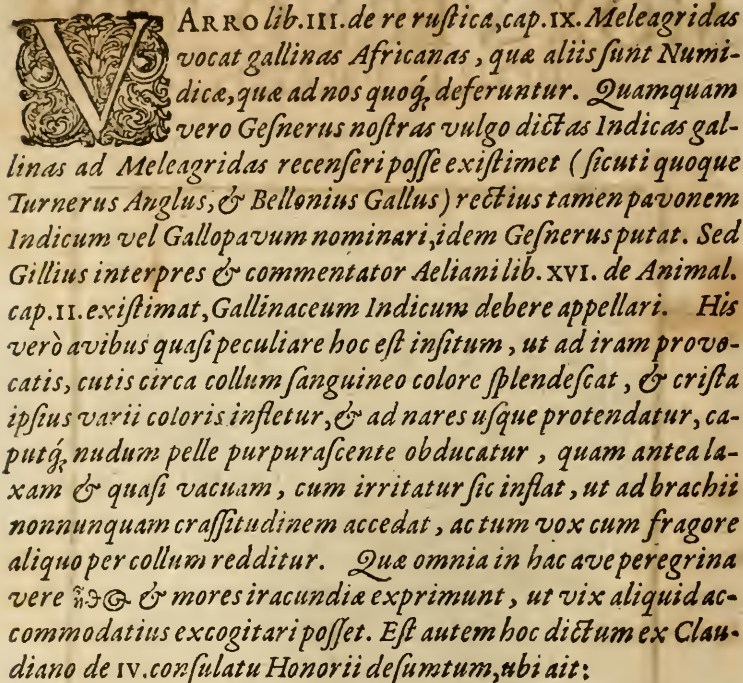 VARRO lib. III. de re rustica, cap. IX. Meleagridas
vocat gallinas Africanas, quæ aliis sunt Numi-
dicæ, quæ ad nos quoq; deferuntur. Quamquam
vero Gesnerus nostras vulgo dictas Indicas gal-
linas ad Meleagridas recenseri posse existimet (sicuti quoque
Turnerus Anglus, & Bellonius Gallus) rectius tamen pavonem
Indicum vel Gallopavum nominari, idem Gesnerus putat. Sed
Gillius interpres & commentator Aeliani lib. XVI. de Animal.
cap. II. existimat, Gallinaceum Indicum debere appellari. His
verò avibus quasi peculiare hoc est insitum, ut ad iram provo-
catis, cutis circa collum sanguineo colore splendescat, & crista
ipsius varii coloris infletur, & ad nares usque protendatur, ca-
putq; nudum pelle purpurascente obducatur, quam antea la-
xam & quasi vacuam, cum irritatur sic inflat, ut ad brachii
nonnunquam crassitudinem accedat, ac tum vox cum fragore
aliquo per collum redditur. Quæ omnia in hac ave peregrina
vere & mores iracundiæ exprimunt, ut vix aliquid ac-
commodatius excogitari posset. Est autem hoc dictum ex Clau-
diano de IV. consulatu Honorii desumtum, ubi ait: